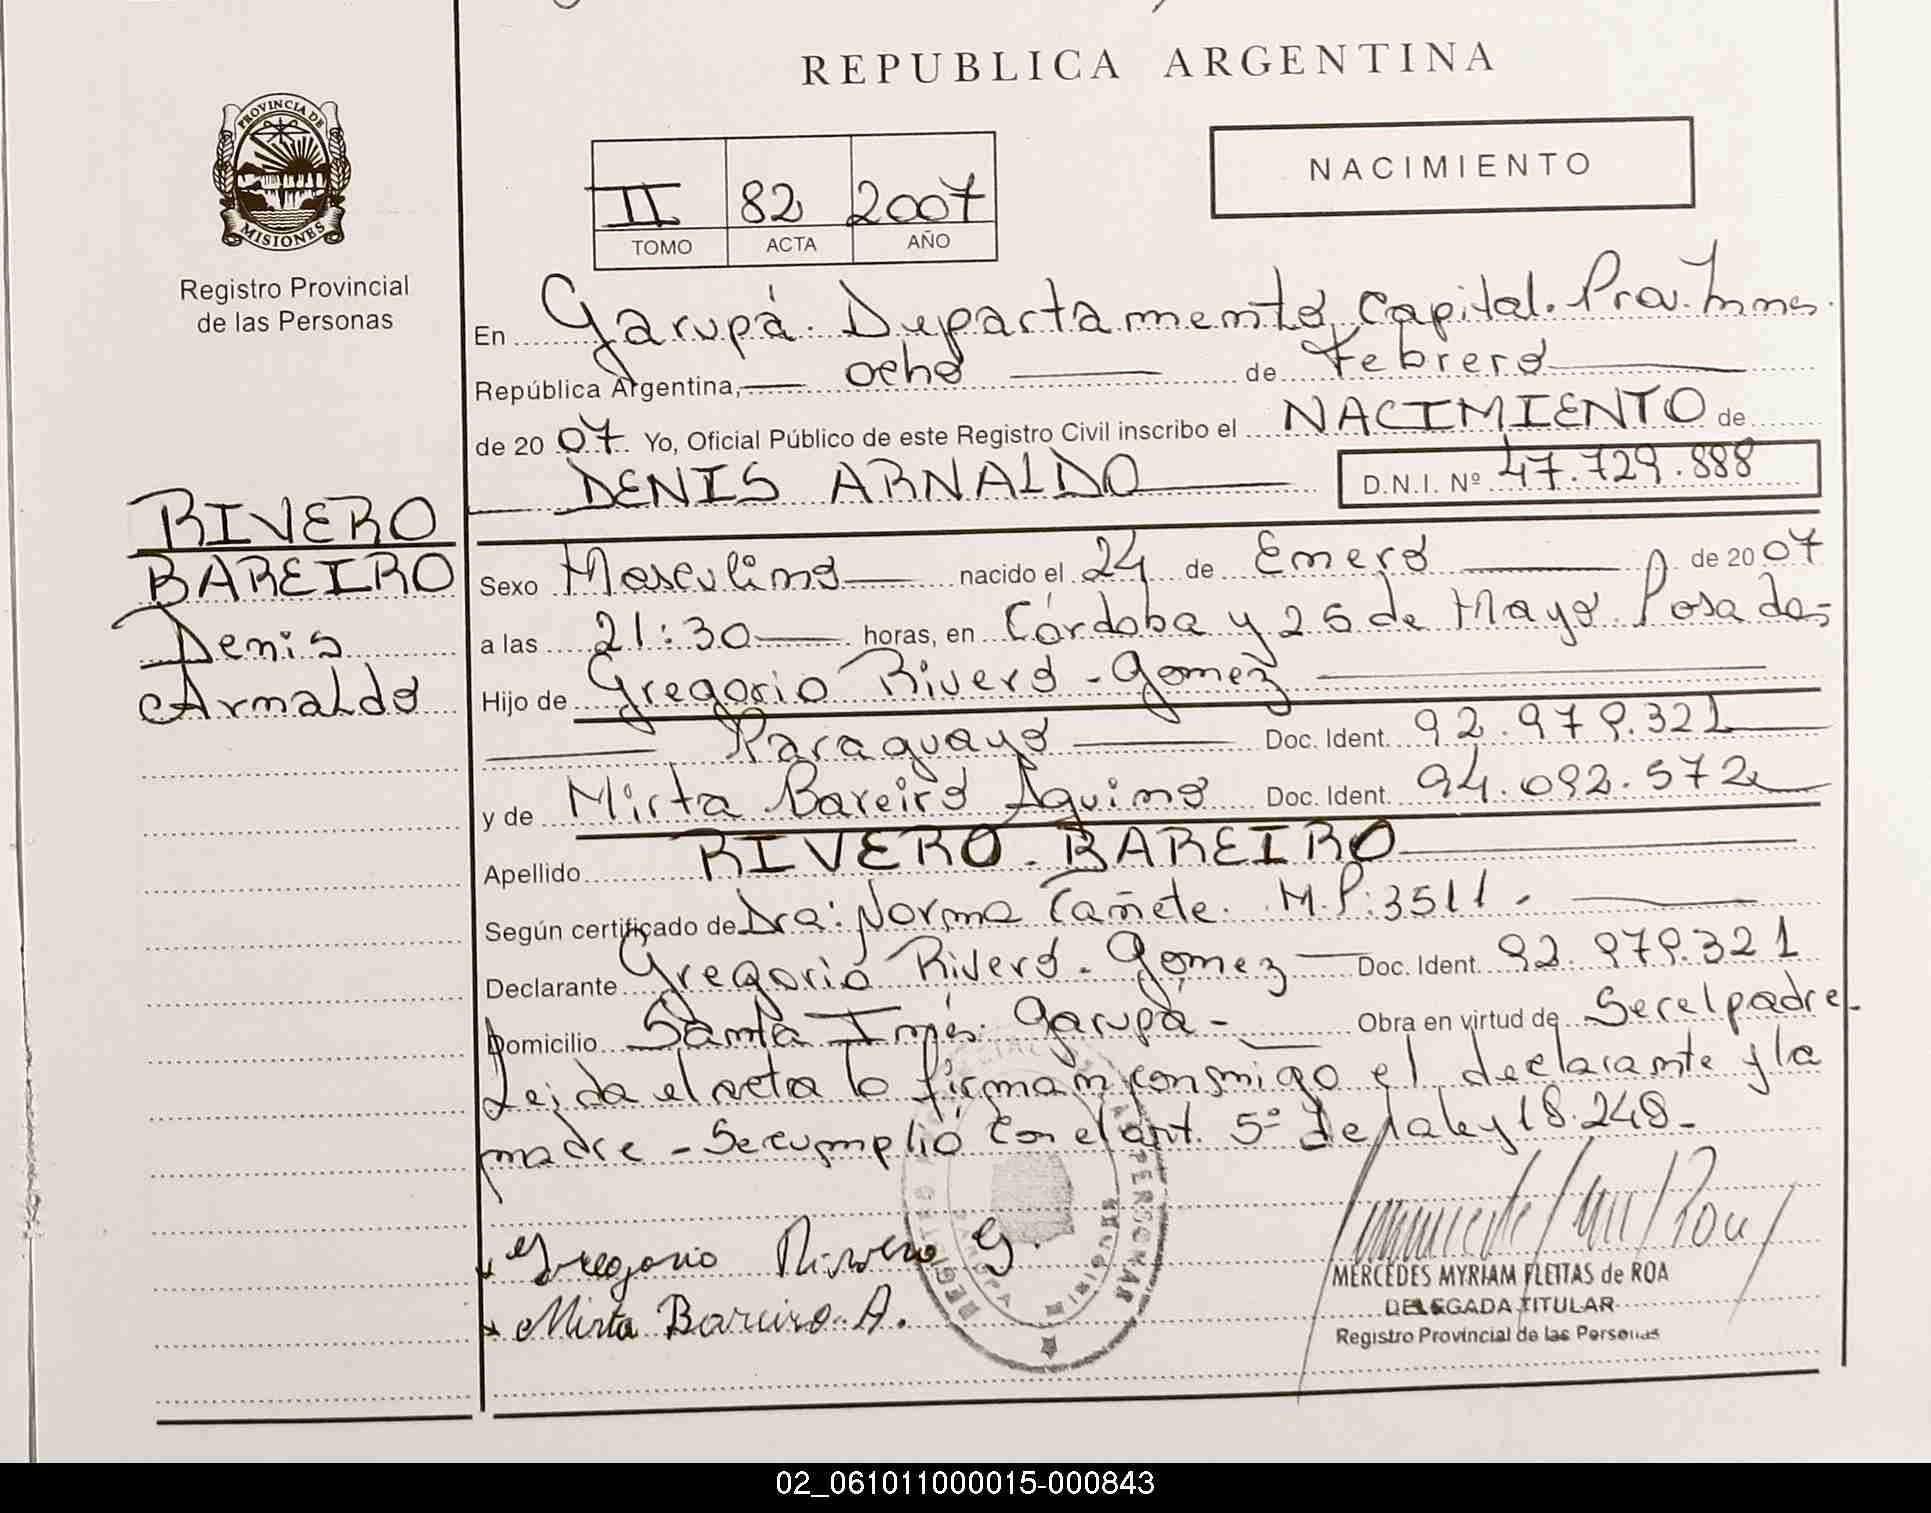 REPUBLICA ARGENTINA
PROVINCIA DE
MISIONES
Registro Provincial
de las Personas
NACIMIENTO
II 82 2007
TOMO ACTA AÑO
En Garupá. Departamento Capital. Prov. Mnes.
República Argentina, ocho de Febrero
de 2007. Yo, Oficial Público de este Registro Civil inscribo el NACIMIENTO de
DENIS ARNALDO D.N.I. Nº 47.729.888
RIVERO
BAREIRO
Denis
Arnaldo
Sexo Masculino nacido el 24 de Enero de 2007
a las 21:30 horas, en Córdoba y 25 de Mayo. Posadas
Hijo de Gregorio Rivero - Gomez
Paraguayo Doc. Ident. 92.979.321
y de Mirta Bareiro Aquino Doc. Ident. 94.092.572
Apellido RIVERO - BAREIRO
Según certificado de Dra: Norma Cañete. M.P: 3511.
Declarante Gregorio Rivero - Gomez Doc. Ident. 92.979.321
Domicilio Santa Inés. Garupá - Obra en virtud de Ser el padre -
Leida el acta la firman conmigo el declarante y la
madre - Se cumplió con el art. 5º de la ley 18.248 -
Gregorio Rivero G.
Mirta Bareiro A.
MERCEDES MYRIAM FLEITAS de ROA
DELEGADA TITULAR
Registro Provincial de las Personas
02_061011000015-000843